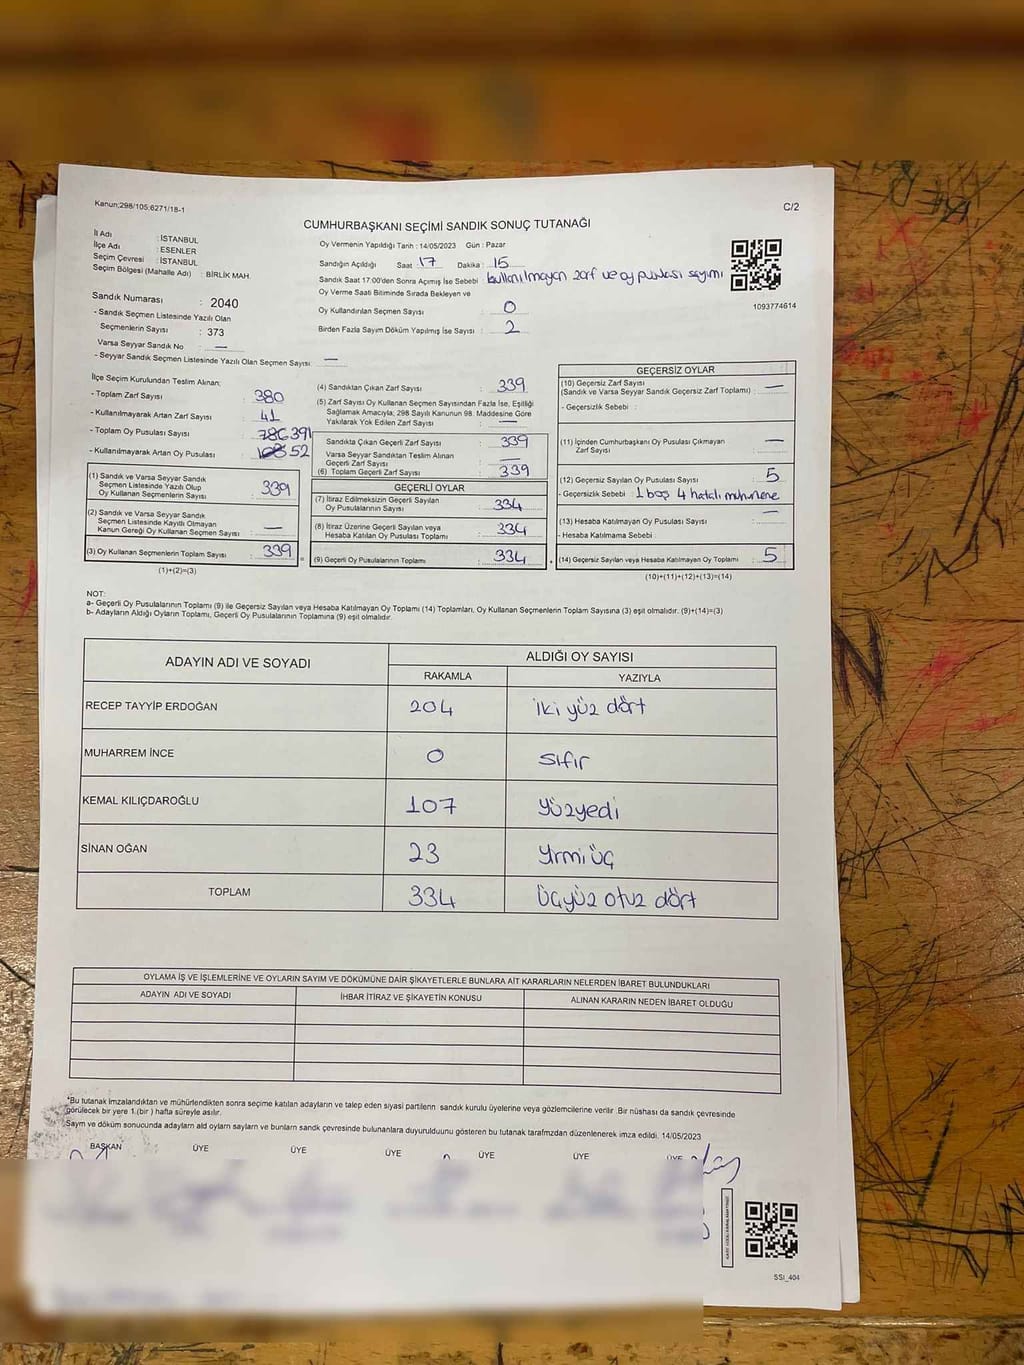 Kanun;298/105;6271/18-1
C/2
CUMHURBAŞKANI SEÇİMİ SANDIK SONUÇ TUTANAĞI
İl Adı : İSTANBUL
İlçe Adı : ESENLER
Seçim Çevresi : İSTANBUL
Seçim Bölgesi (Mahalle Adı) : BİRLİK MAH.
Oy Vermenin Yapıldığı Tarih : 14/05/2023 Gün : Pazar
Sandığın Açıldığı Saat 17 Dakika : 15
Sandık Saat 17:00'den Sonra Açımış İse Sebebi : kullanılmayan zarf ve oy pusulası sayımı
Oy Verme Saati Bitiminde Sırada Bekleyen ve
Oy Kullandırılan Seçmen Sayısı : 0
Birden Fazla Sayım Döküm Yapılmış İse Sayısı : 2
1093774614
Sandık Numarası : 2040
- Sandık Seçmen Listesinde Yazılı Olan
Seçmenlerin Sayısı : 373
Varsa Seyyar Sandık No : —
- Seyyar Sandık Seçmen Listesinde Yazılı Olan Seçmen Sayısı: —
İlçe Seçim Kurulundan Teslim Alınan;
- Toplam Zarf Sayısı : 380
- Kullanılmayarak Artan Zarf Sayısı : 41
- Toplam Oy Pusulası Sayısı : 391
- Kullanılmayarak Artan Oy Pusulası : 52
(1) Sandık ve Varsa Seyyar Sandık
Seçmen Listesinde Yazılı Olup
Oy Kullanan Seçmenlerin Sayısı : 339
(2) Sandık ve Varsa Seyyar Sandık
Seçmen Listesinde Kayıtlı Olmayan
Kanun Gereği Oy Kullanan Seçmen Sayısı : —
(3) Oy Kullanan Seçmenlerin Toplam Sayısı : 339
(1)+(2)=(3)
(4) Sandıktan Çıkan Zarf Sayısı : 339
(5) Zarf Sayısı Oy Kullanan Seçmen Sayısından Fazla İse, Eşitliği
Sağlamak Amacıyla; 298 Sayılı Kanunun 98. Maddesine Göre
Yakılarak Yok Edilen Zarf Sayısı : —
Sandıkta Çıkan Geçerli Zarf Sayısı : 339
Varsa Seyyar Sandıktan Teslim Alınan
Geçerli Zarf Sayısı : —
(6) Toplam Geçerli Zarf Sayısı : 339
GEÇERLİ OYLAR
(7) İtiraz Edilmeksizin Geçerli Sayılan
Oy Pusulalarının Sayısı : 334
(8) İtiraz Üzerine Geçerli Sayılan veya
Hesaba Katılan Oy Pusulası Toplamı : 334
(9) Geçerli Oy Pusulalarının Toplamı : 334
GEÇERSİZ OYLAR
(10) Geçersiz Zarf Sayısı
(Sandık ve Varsa Seyyar Sandık Geçersiz Zarf Toplamı) : —
- Geçersizlik Sebebi :
(11) İçinden Cumhurbaşkanı Oy Pusulası Çıkmayan
Zarf Sayısı : —
(12) Geçersiz Sayılan Oy Pusulası Sayısı : 5
- Geçersizlik Sebebi : 1 boş 4 hatalı mühürleme
(13) Hesaba Katılmayan Oy Pusulası Sayısı : —
- Hesaba Katılmama Sebebi
(14) Geçersiz Sayılan veya Hesaba Katılmayan Oy Toplamı : 5
(10)+(11)+(12)+(13)=(14)
NOT:
a- Geçerli Oy Pusulalarının Toplamı (9) ile Geçersiz Sayılan veya Hesaba Katılmayan Oy Toplamı (14) Toplamları, Oy Kullanan Seçmenlerin Toplam Sayısına (3) eşit olmalıdır. (9)+(14)=(3)
b- Adayların Aldığı Oyların Toplamı, Geçerli Oy Pusulalarının Toplamına (9) eşit olmalıdır.
ADAYIN ADI VE SOYADI ALDIĞI OY SAYISI
RAKAMLA YAZIYLA
RECEP TAYYİP ERDOĞAN 204 iki yüz dört
MUHARREM İNCE 0 sıfır
KEMAL KILIÇDAROĞLU 107 yüzyedi
SİNAN OĞAN 23 yirmi üç
TOPLAM 334 üçyüz otuz dört
OYLAMA İŞ VE İŞLEMLERİNE VE OYLARIN SAYIM VE DÖKÜMÜNE DAİR ŞİKAYETLERLE BUNLARA AİT KARARLARIN NELERDEN İBARET BULUNDUKLARI
ADAYIN ADI VE SOYADI İHBAR İTİRAZ VE ŞİKAYETİN KONUSU ALINAN KARARIN NEDEN İBARET OLDUĞU
*Bu tutanak imzalandıktan ve mühürlendikten sonra seçime katılan adayların ve talep eden siyasi partilerin sandık kurulu üyelerine veya gözlemcilerine verilir. Bir nüshası da sandık çevresinde
görülecek bir yere 1.(bir ) hafta süreyle asılır.
Sayım ve döküm sonucunda adayların aldı oyların sayların ve bunların sandk çevresinde bulunanlara duyurulduunu gösteren bu tutanak tarafmzdan düzenlenerek imza edildi. 14/05/2023
BAŞKAN ÜYE ÜYE ÜYE ÜYE ÜYE ÜYE
SSI_404